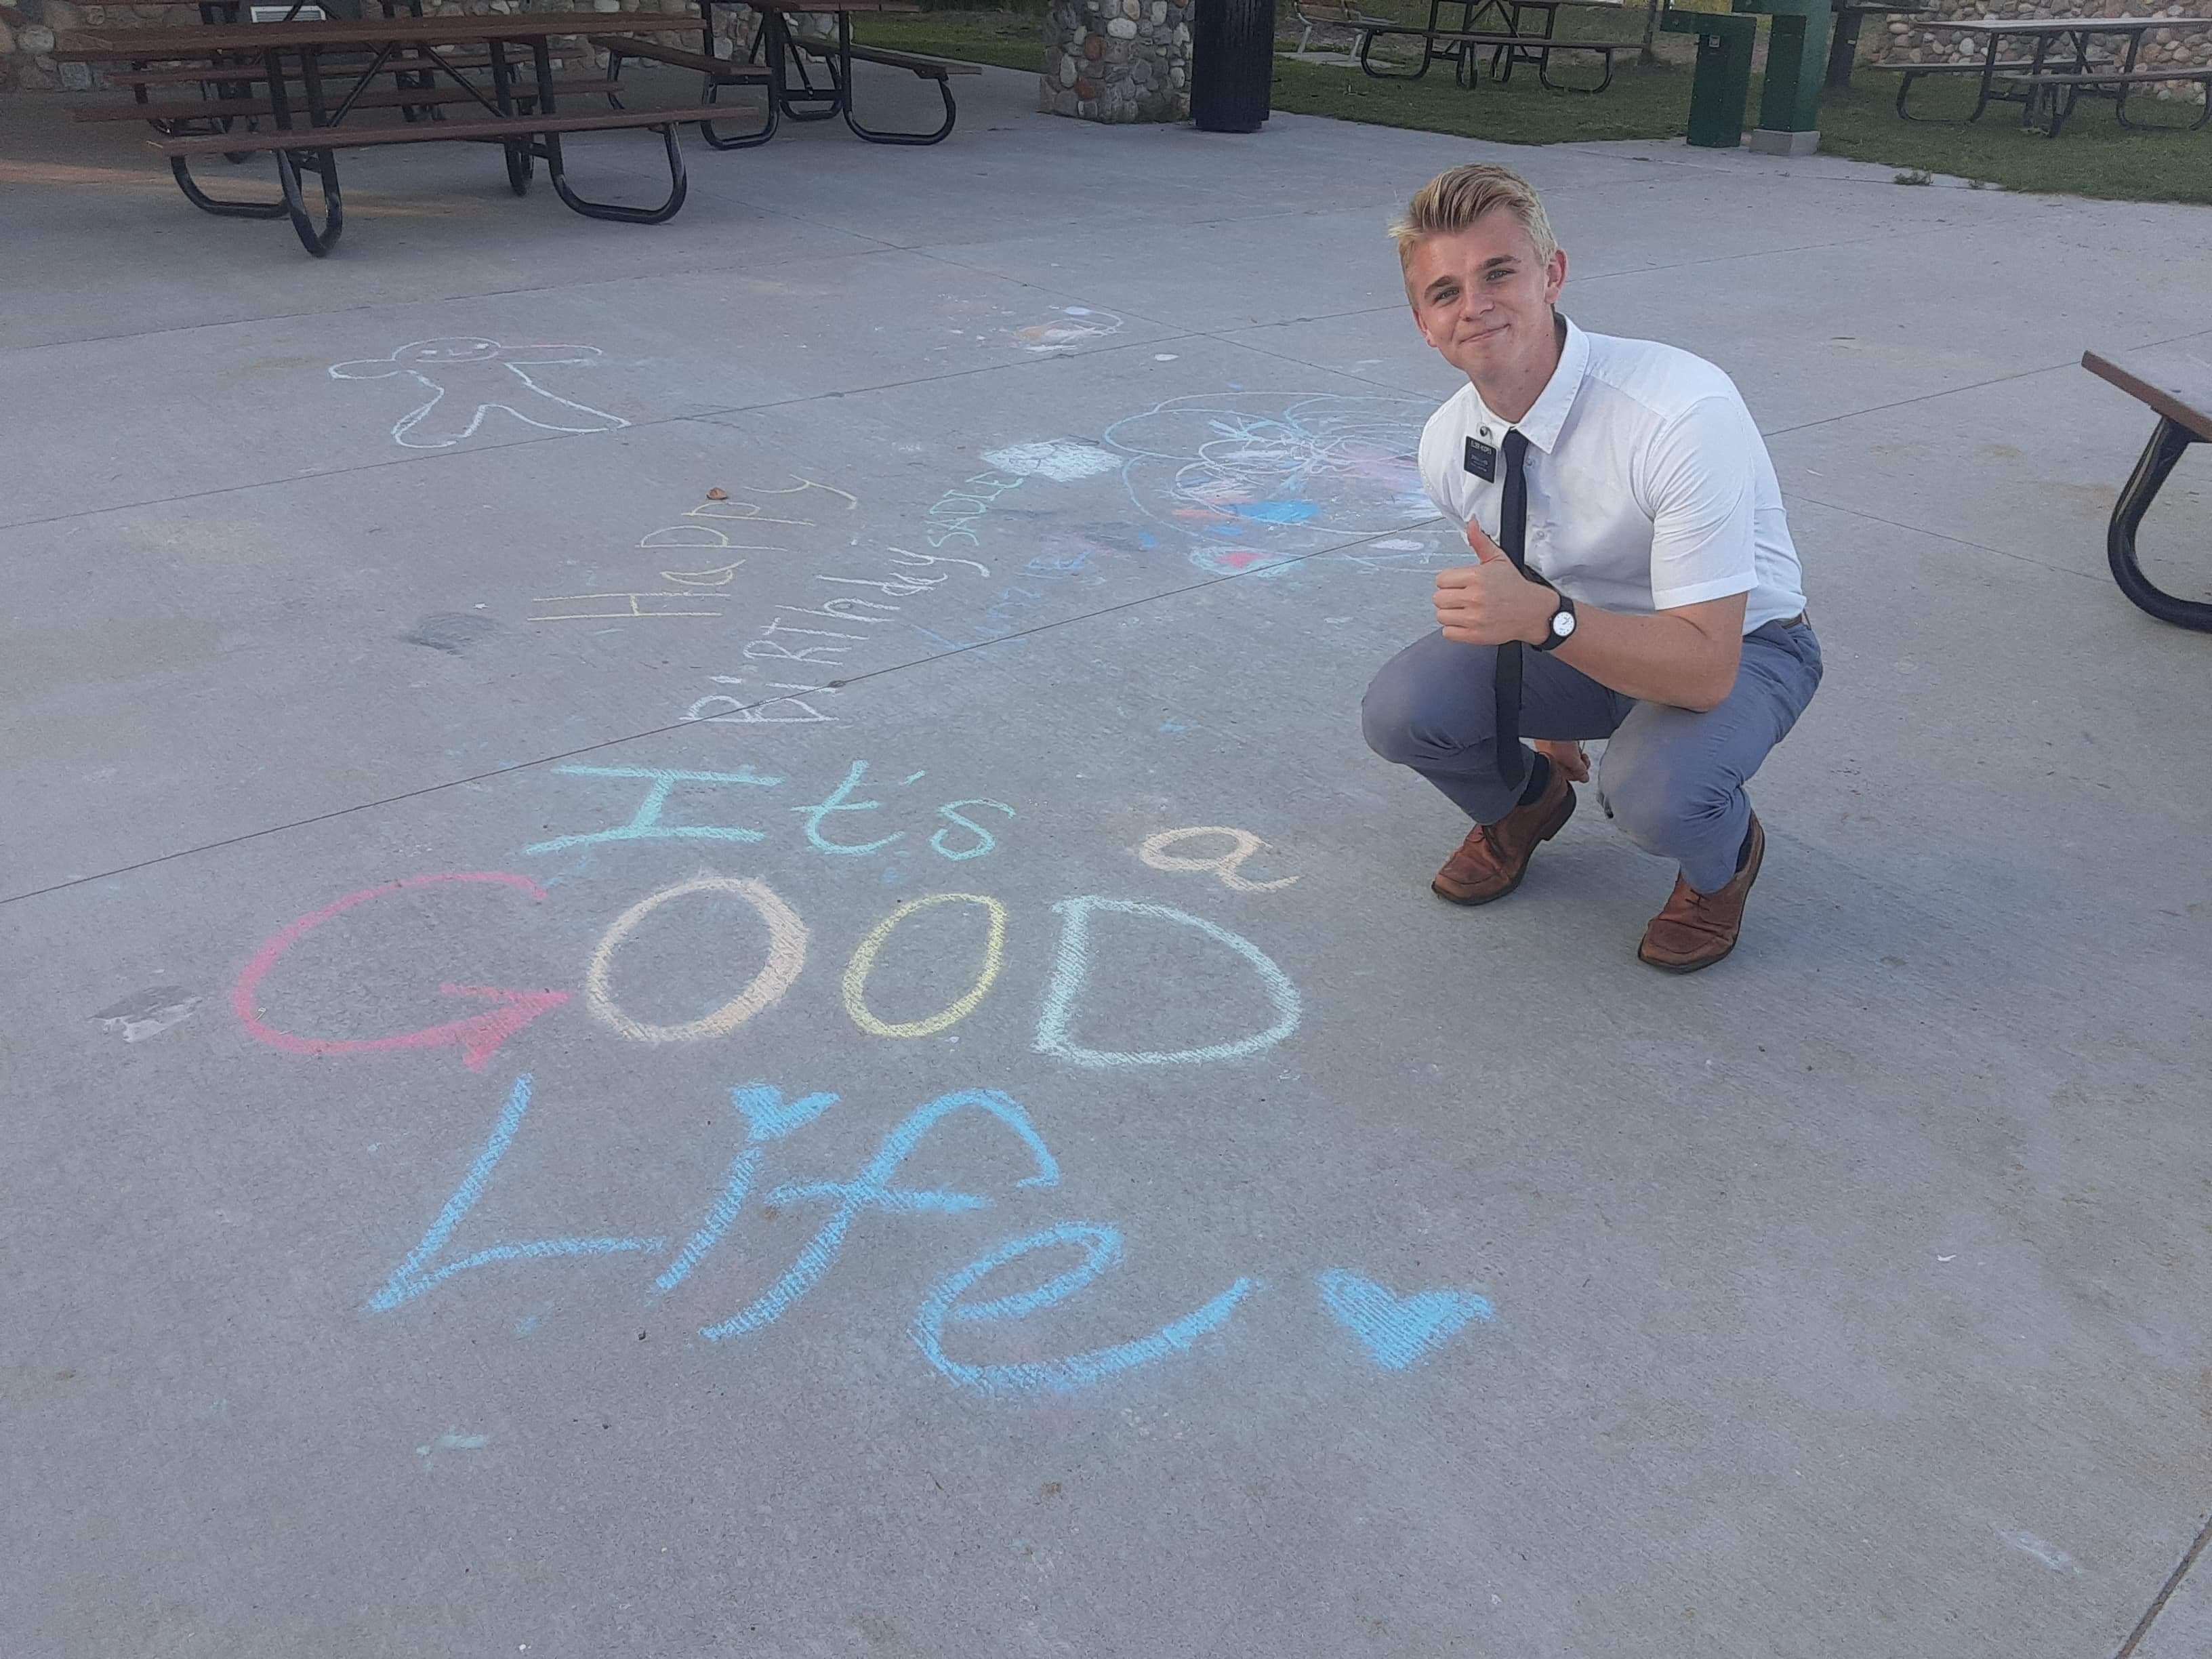 Happy
BiRThday SADIE
It's a
GOOD
Life